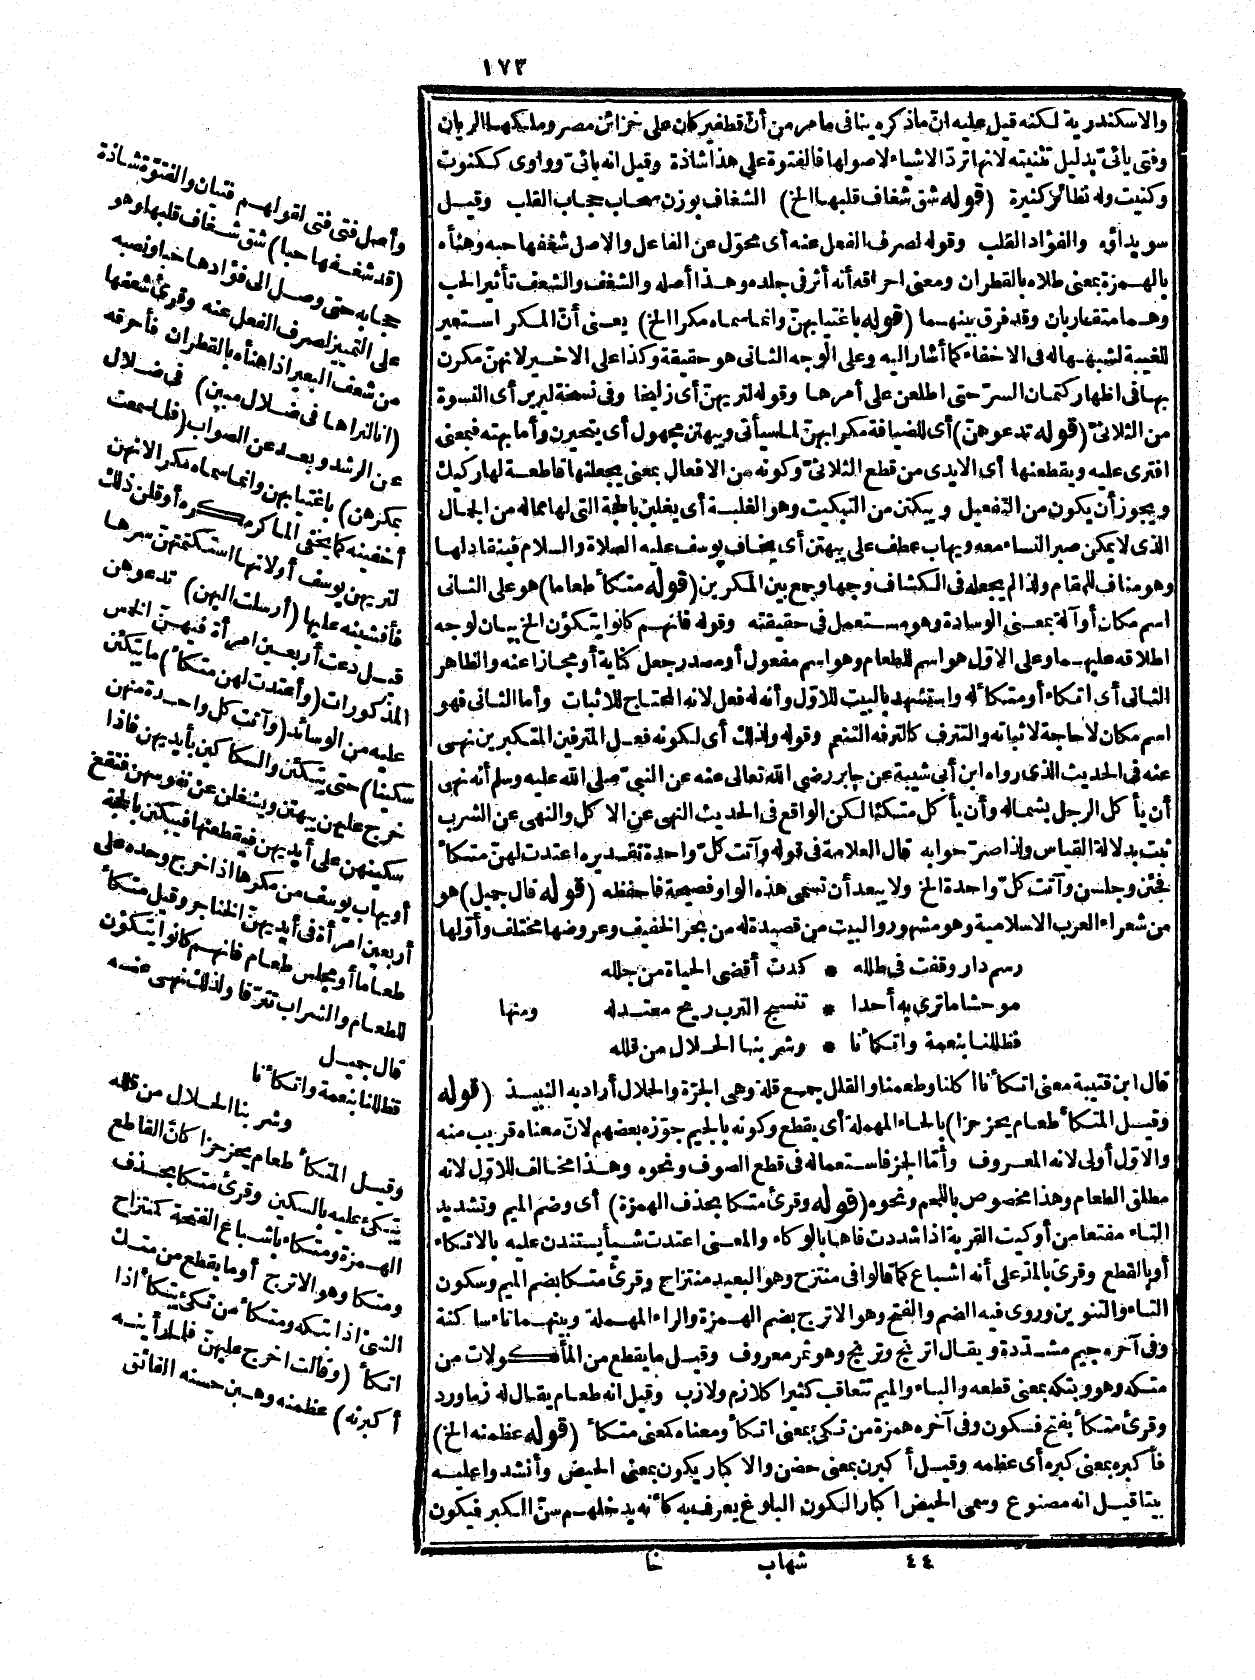 ١٧٣
والاسكندرية لكنه قيل عليه انّ ماذكره ينافى مامر من أنّ قطفير كان على خزائن مصر وملكها الريان
وفتى يائىّ بدليل تثنيته لانها تردّ الاشياء لاصولها فالفتوة على هذا شاذة وقيل انه يائىّ وواوى ككنوت
وكنيت وله نظائر كثيرة (قوله شق شغاف قلبها الخ) الشغاف بوزن سحاب حجاب القلب وقيل
سويداؤه والفؤاد القلب وقوله لصرف الفعل عنه أى محوّل عن الفاعل والاصل شغفها حبه وهنأه
بالهمزة بمعنى طلاه بالقطران ومعنى احراقه أنه أثر فى جلده وهذا أصله والشغف والشعف تأثير الحب
وهما متقاربان وقد فرق بينهما (قوله باغتيابهنّ وانما سماه مكرا الخ) يعنى أنّ المكر استعير
للغيبة لشبهها له فى الاخفاء كما أشار اليه وعلى الوجه الثانى هو حقيقة وكذا على الاخير لانهنّ مكرن
بها فى اظهار كتمان السرّ حتى اطلعن على أمرها وقوله لتريهنّ أى زليخا وفى نسخة ليرين أى النسوة
من الثلاثىّ (قوله تدعوهنّ) أى للضيافة مكرا بهنّ لما سيأتى ويبهتن مجهول أى يتحيرن وأما بهته فبمعنى
افترى عليه ويقطعنها أى الايدى من قطع الثلاثىّ وكونه من الافعال بمعنى يجعلنها قاطعة لها ركيك
ويجوز أن يكون من التفعيل ويبكتن من التبكيت وهو الغلبة أى يغلبن بالحجة التى لها مماله من الجمال
الذى لا يمكن صبر النساء معه ويهاب عطف على يبهتن أى يخاف يوسف عليه الصلاة والسلام فينقاد لها
وهو مناف للمقام ولذا لم يجعله فى الكشاف وجها وجمع بين المكرين (قوله متكأ طعاما) هو على الثانى
اسم مكان أو آلة بمعنى الوسادة وهو مستعمل فى حقيقته وقوله فانهم كانوا يتكؤن الخ بيان لوجه
اطلاقه عليهما وعلى الاوّل هو اسم للطعام وهو اسم مفعول أو مصدر جعل كناية أو مجازا عنه والظاهر
الثانى أى اتكاء أو متكأ له واستشهد بالبيت للاوّل وأنه له فعل لانه المحتاج للاثبات وأما الثانى فهو
اسم مكان لا حاجة لاثباته والتترف كالترفه التنعم وقوله ولذلك أى لكونه فعل المترفين المتكبرين نهى
عنه فى الحديث الذى رواه ابن أبى شيبة عن جابر رضى الله تعالى عنه عن النبىّ صلى الله عليه وسلم أنه نهى
أن يأكل الرجل بشماله وأن يأكل متكئا لكن الواقع فى الحديث النهى عن الاكل والنهى عن الشرب
ثبت بدلالة القياس ولذا صرّحوا به قال العلامة فى قوله وآتت كلّ واحدة تقديره اعتدت لهنّ متكأ
فجئن وجلسن وآتت كلّ واحدة الخ ولا يبعد أن تسمى هذه الواو فصيحة فاحفظه (قوله قال جميل) هو
من شعراء العرب الاسلامية وهو مشهور والبيت من قصيدة له من بحر الخفيف وعروضها مختلف وأوّلها
رسم دار وقفت فى طلله * كدت أقضى الحياة من جلله
موحشا ما ترى به أحدا * تنسج الترب ريح معتدله ومنها
فظللنا بنعمة واتكأنا * وشربنا الحلال من قلله
قال ابن قتيبة معنى اتكأنا أكلنا وطعمنا والقلل جمع قلة وهى الجرّة والحلال أراد به النبيذ (قوله
وقيل المتكأ طعام يحز حزا) بالحاء المهملة أى يقطع وكونه بالجيم جوّزه بعضهم لانّ معناه قريب منه
والاوّل أولى لانه المعروف وأمّا الجز فاستعماله فى قطع الصوف ونحوه وهذا مخالف للاوّل لانه
مطلق الطعام وهذا مخصوص باللحم ونحوه (قوله وقرئ متكا بحذف الهمزة) أى وضم الميم وتشديد
التاء مفتعا من أوكيت القربة اذا شددت فاها بالوكاء والمعنى اعتدت شيأ يستندن عليه بالاتكاء
أو بالقطع وقرئ بالمدّ على أنه اشباع كما قالوا فى منتزح وهو البعيد منتزاح وقرئ متكا بضم الميم وسكون
التاء والتنوين وروى فيه الضم والفتح وهو الاترج بضم الهمزة والراء المهملة وبينهما تاء ساكنة
وفى آخره جيم مشدّدة ويقال اترنج وترنج وهو ثمر معروف وقيل ما يقطع من المأكولات من
متكه وهو وبتكه بمعنى قطعه والباء والميم تتعاقب كثيرا كلازم ولازب وقيل انه طعام يقال له زماورد
وقرئ متكأ بفتح فسكون وفى آخره همزة من تكئ بمعنى اتكأ ومعناه كمعنى متكأ (قوله عظمنه الخ)
فأكبره بمعنى كبره أى عظمه وقيل أكبرن بمعنى حضن والاكبار يكون بمعنى الحيض وأنشدوا عليه
بيتا قيل انه مصنوع وسمى الحيض اكبارا لكون البلوغ يعرف به كأنه يدخلهم سنّ الكبر فيكون
٤٤ شهاب خا
وأصل فتى فتى لقولهم فتيان والفتوّة شاذة
(قد شغفها حبا) شق شغاف قلبها وهو
حجابه حتى وصل الى فؤادها حبا ونصبه
على التمييز لصرف الفعل عنه وقرئ شعفها
من شعف البعير اذا هنأه بالقطران فأحرقه
(انا لنراها فى ضلال مبين) فى ضلال
عن الرشد وبعد عن الصواب (فلما سمعت
بمكرهن) باغتيابهن وانما سماه مكرا لانهن
أخفينه كما يخفى الماكر مكره أو قلن ذلك
لتريهن يوسف أو لانها استكتمتهنّ سرها
فأفشينه عليها (أرسلت اليهن) تدعوهن
قيل دعت أربعين امرأة فيهنّ الخمس
المذكورات (وأعتدت لهن متكأ) ما يتكئن
عليه من الوسائد (وآتت كل واحدة منهن
سكينا) حتى يتكئن والسكاكين بأيديهن فاذا
خرج عليهن يبهتن ويشغلن عن نفوسهن فتقع
سكينهن على أيديهن فيقطعنها فيبكتن بالحجة
أو يهاب يوسف من مكرها اذا خرج وحده على
أربعين امرأة فى أيديهنّ الخناجر وقيل متكأ
طعاما أو مجلس طعام فانهم كانوا يتكؤن
للطعام والشراب تترفا ولذلك نهى عنه
قال جميل
فظللنا بنعمة واتكأنا
وشربنا الحلال من قلله
وقيل المتكأ طعام يحز حزا كانّ القاطع
يتكئ عليه بالسكين وقرئ متكا بحذف
الهمزة ومتكاء باشباع الفتحة كمنتزاح
ومتكا وهو الاترج أو ما يقطع من متك
الشئ اذا بتكه ومتكأ من تكئ يتكأ اذا
اتكأ (وقالت اخرج عليهنّ فلما رأينه
أكبرنه) عظمنه وهبن حسنه الفائق